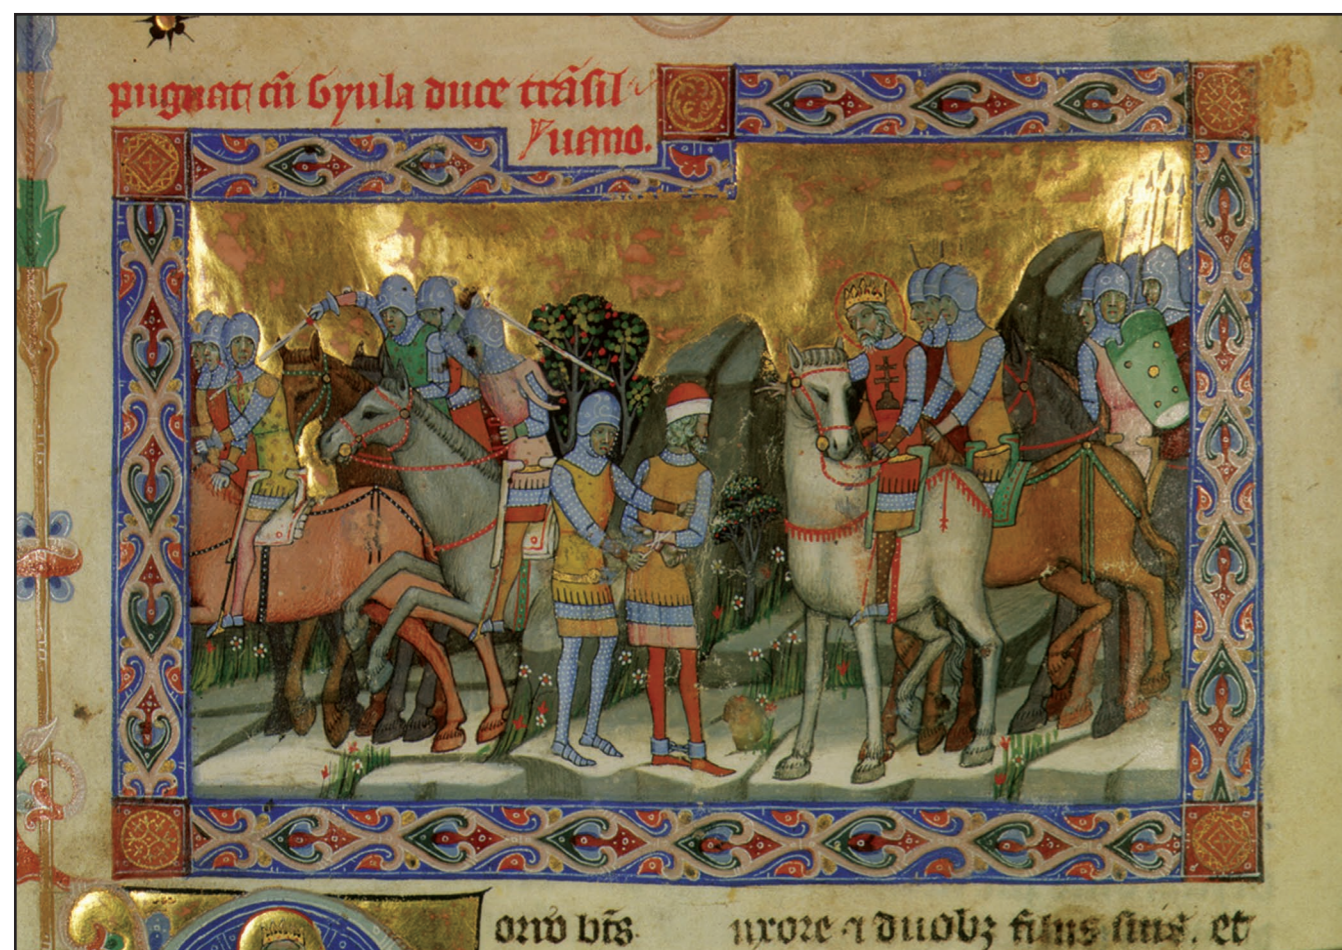 pugnat cū Gyula duce trāsil
uano.
orro btŝ. uxore ⁊ duobꝫ filiis suis. et